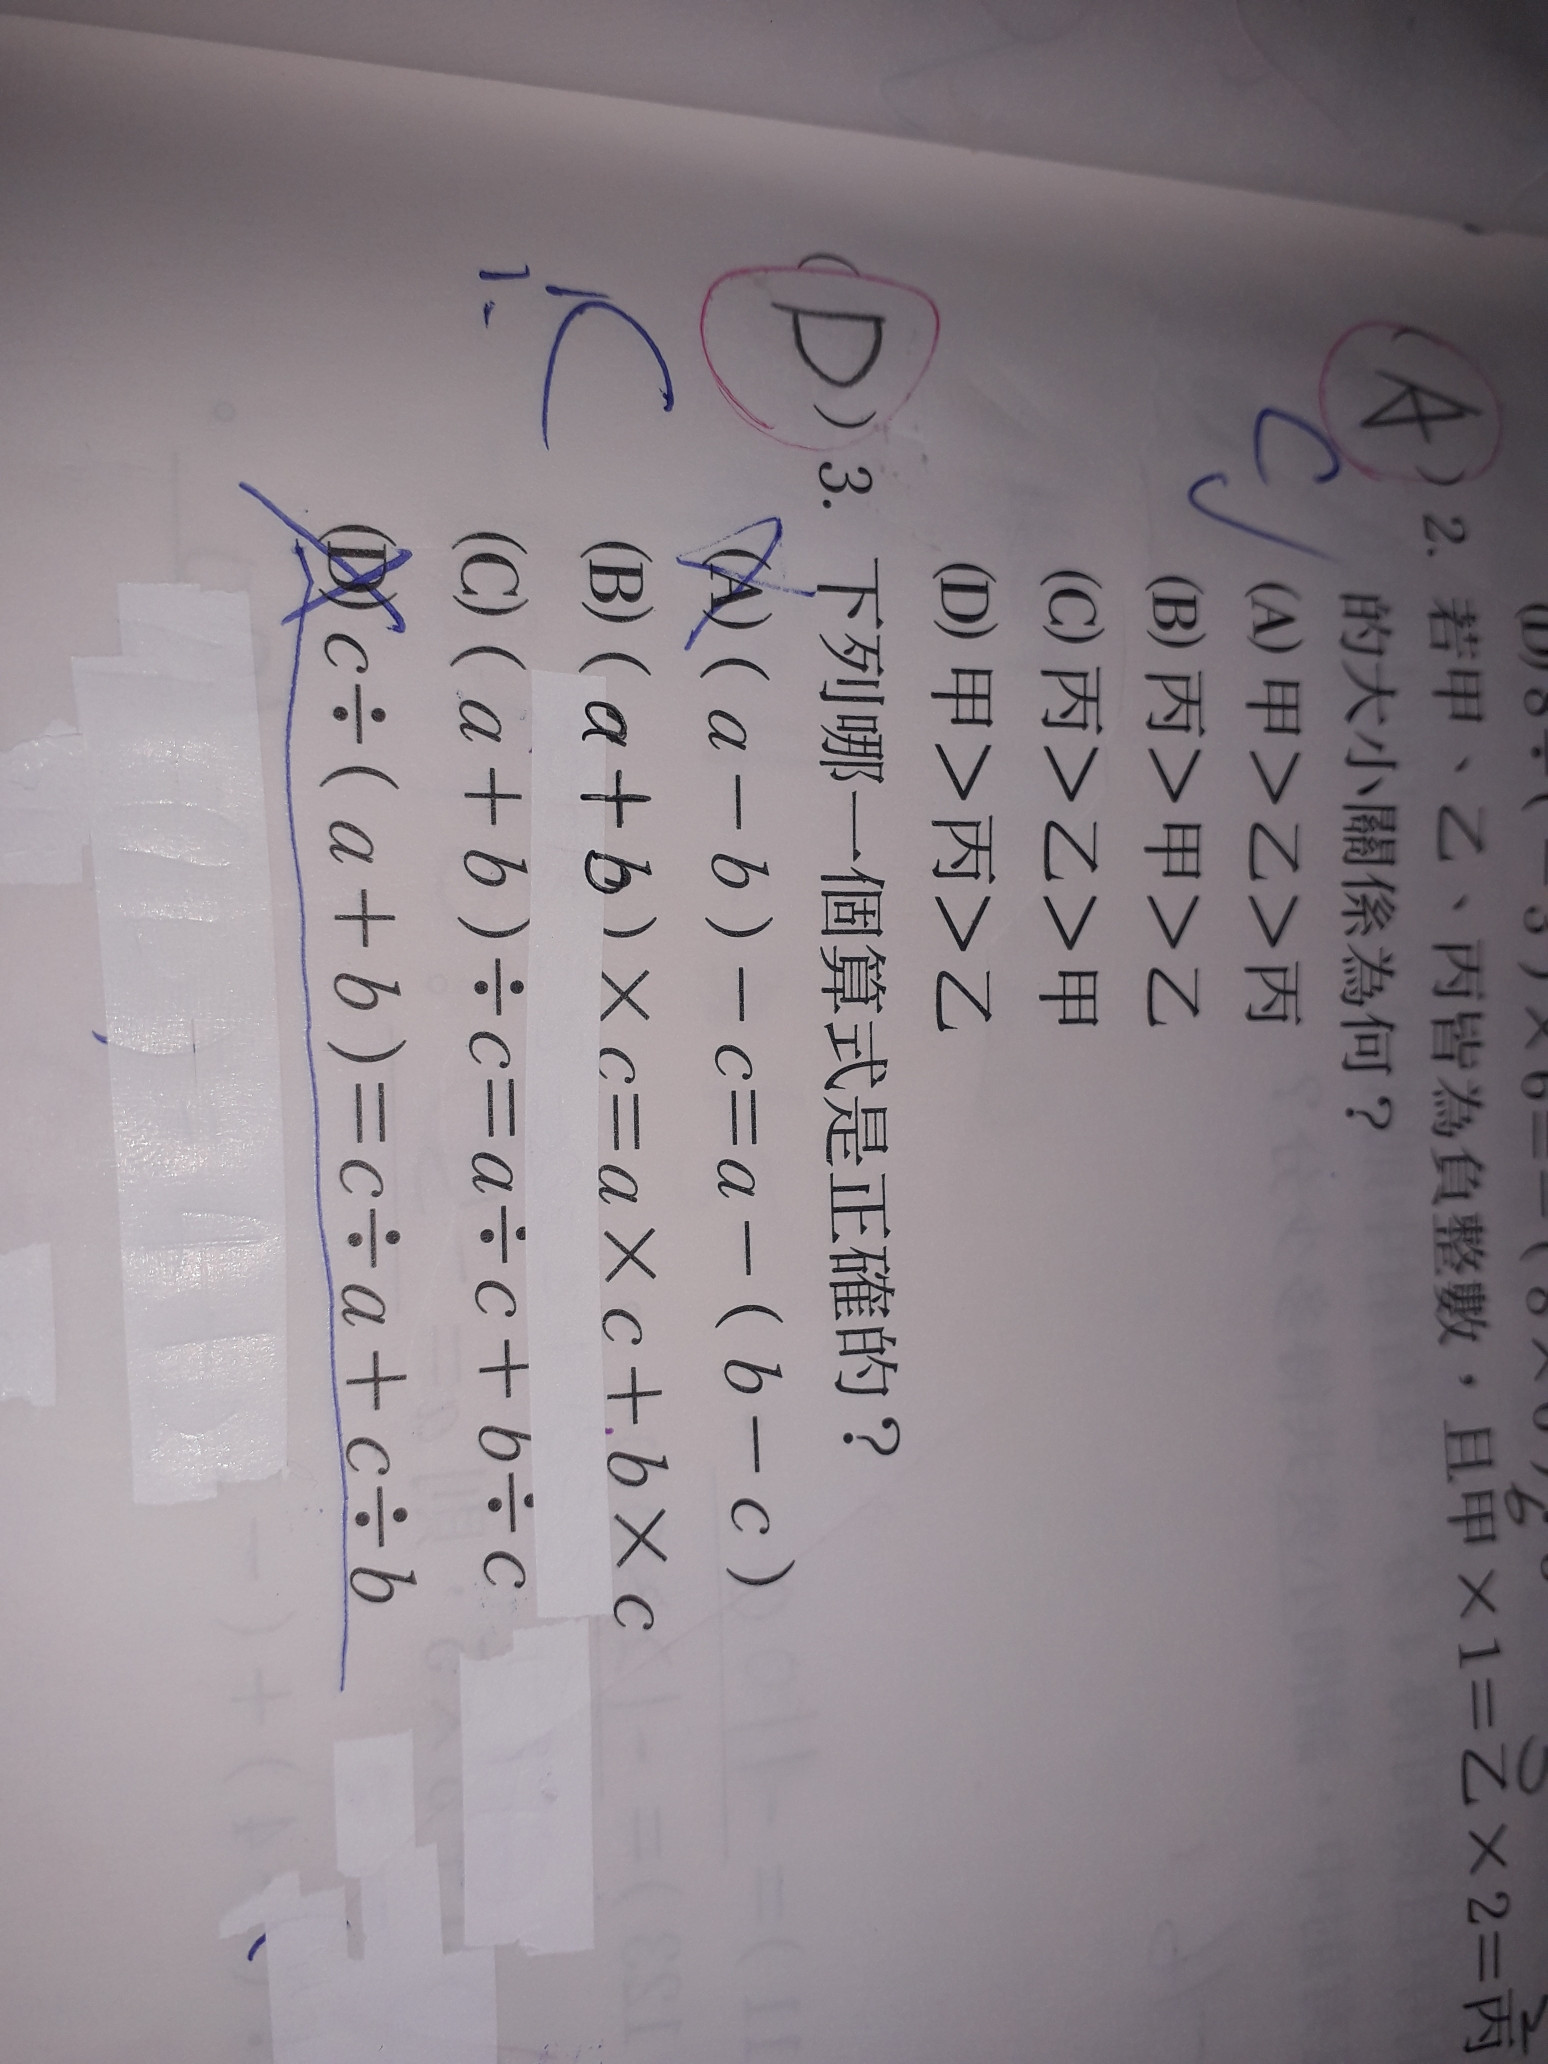 (D) 8÷(－3)×6=－(8×6)
(A) 2. 若甲、乙、丙皆為負整數，且甲×1=乙×2=丙
的大小關係為何？
C
(A) 甲＞乙＞丙
(B) 丙＞甲＞乙
(C) 丙＞乙＞甲
(D) 甲＞丙＞乙
(D) 3. 下列哪一個算式是正確的？
(A) (a－b)－c=a－(b－c)
(B) (a＋b)×c=a×c＋b×c
C
(C) (a＋b)÷c=a÷c＋b÷c
(D) c÷(a＋b)=c÷a＋c÷b